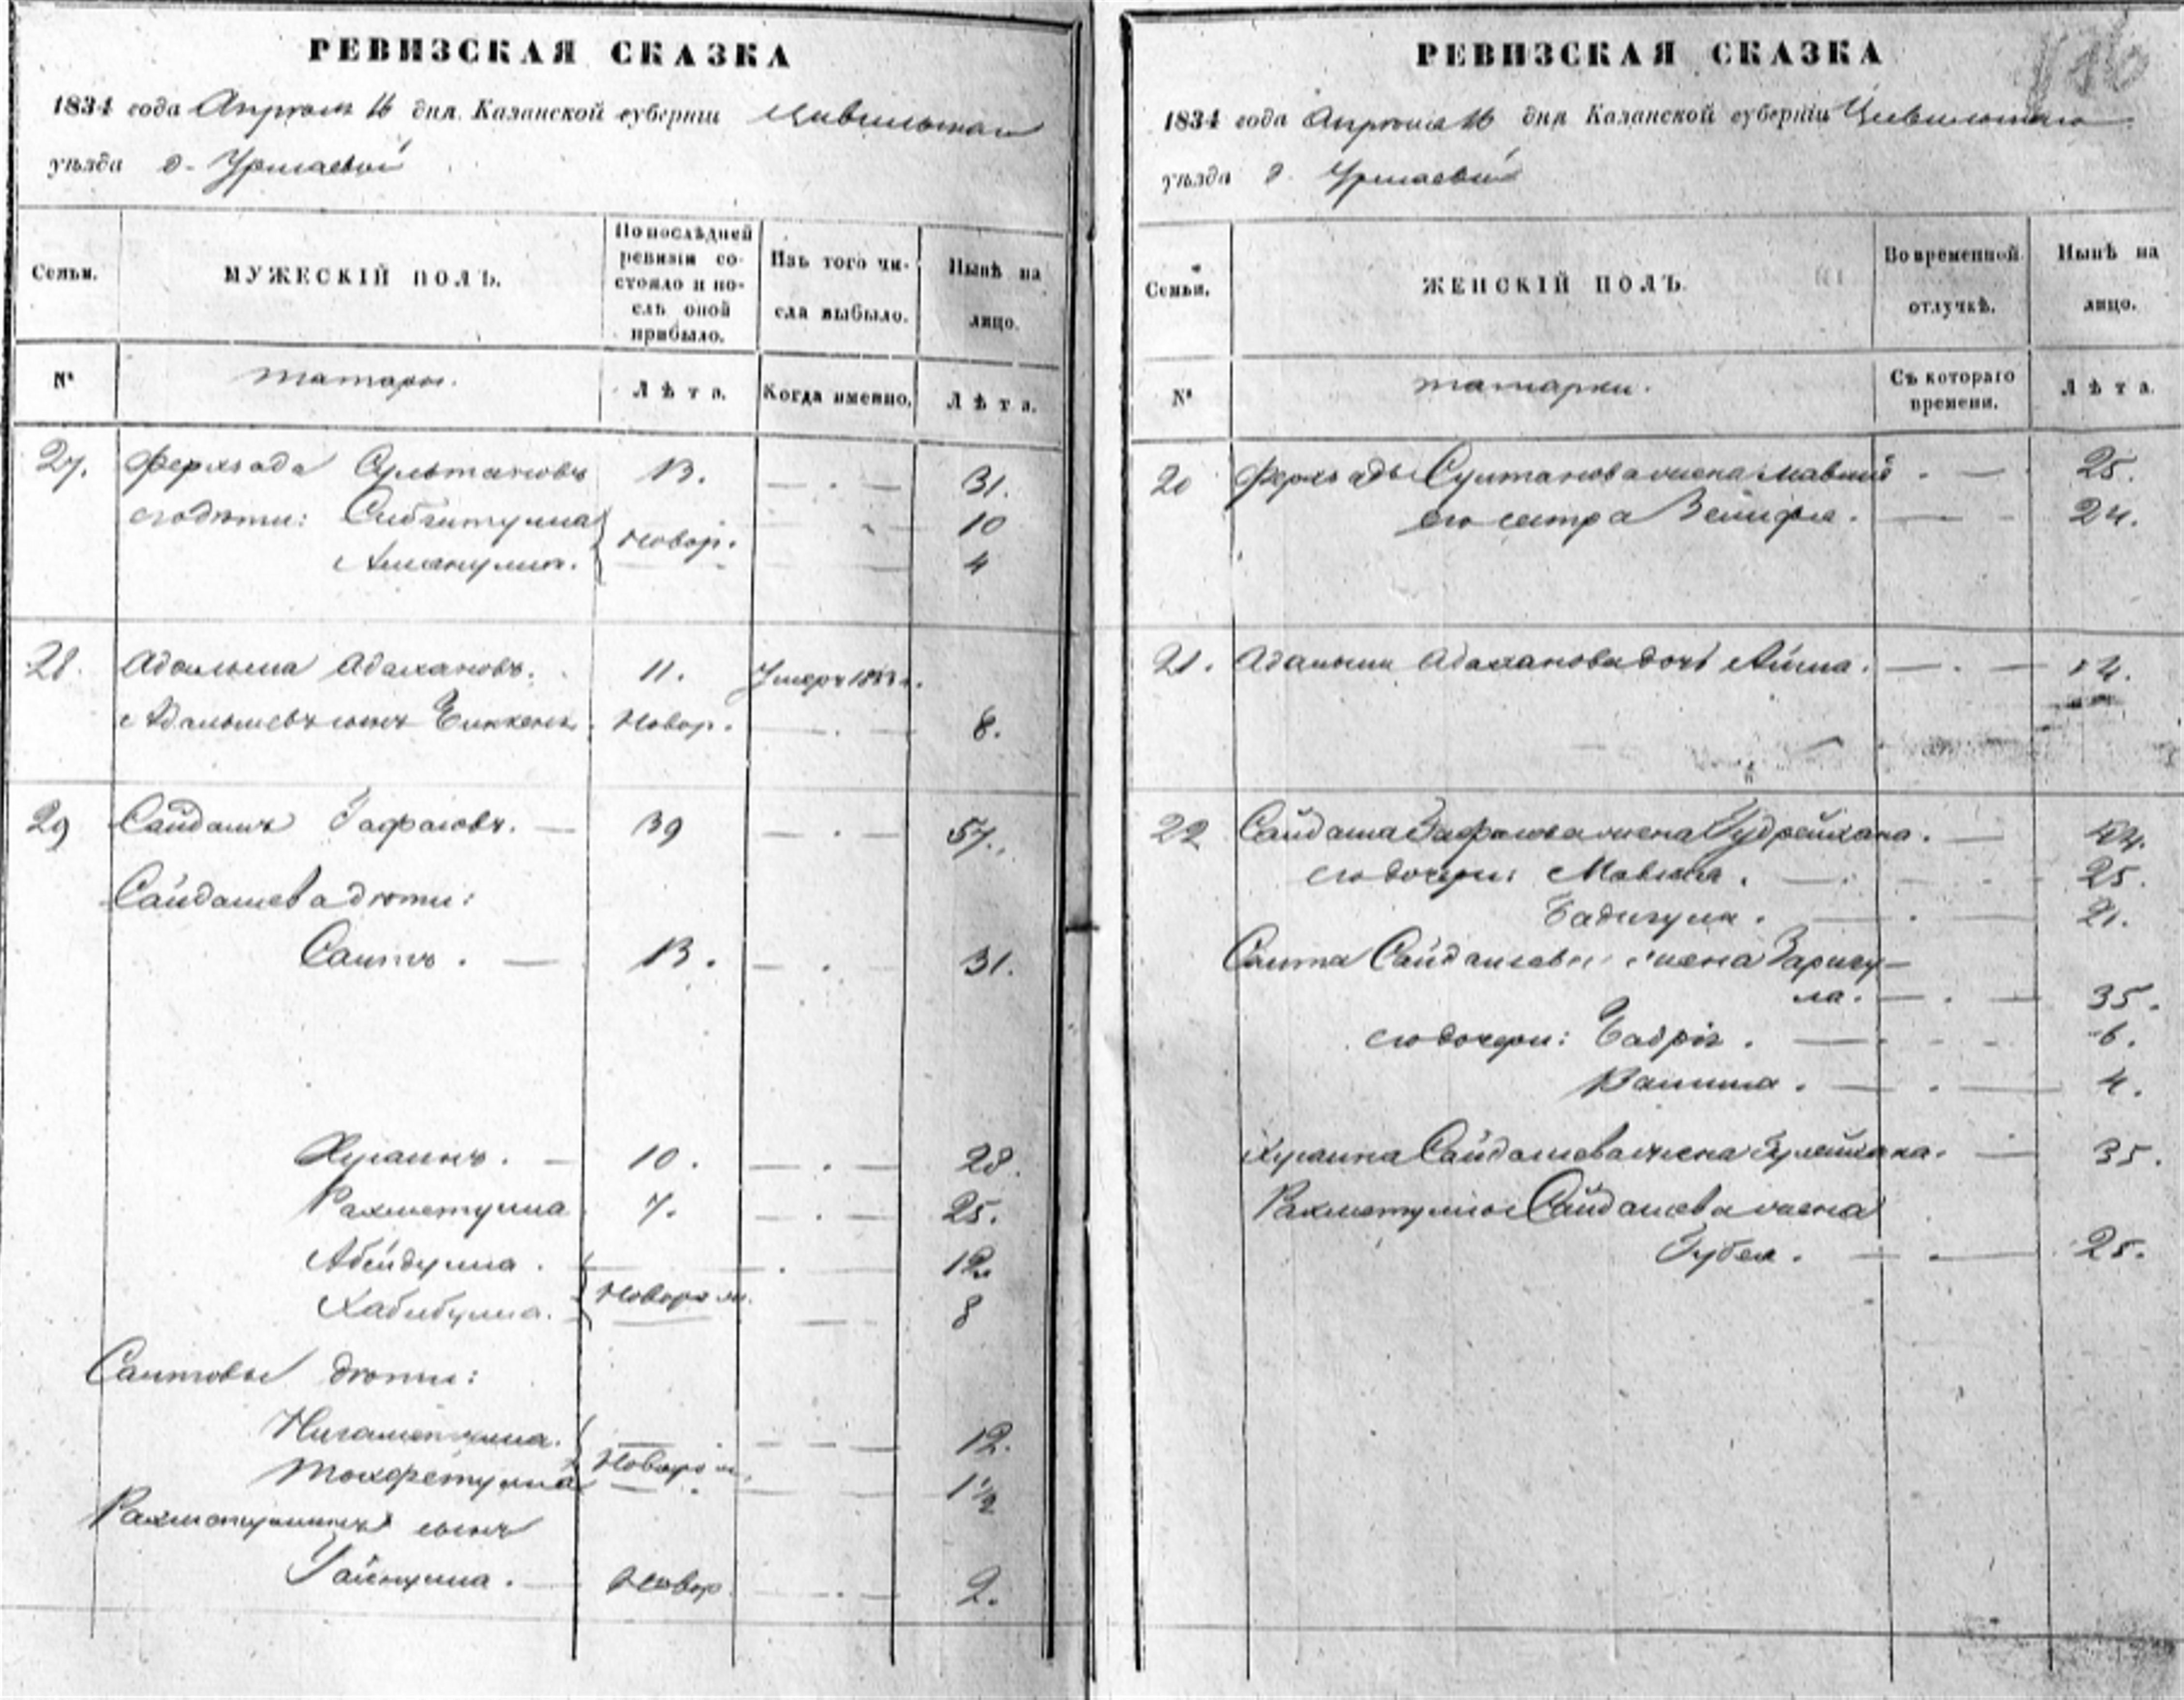 РЕВИЗСКАЯ СКАЗКА
1834 года Апреля 16 дня Казанской губернiи Цивильскаго
уѣзда д. Урмаевой
Семьи. МУЖЕСКIЙ ПОЛЪ. По послѣдней ревизiи состояло и послѣ оной прибыло. Изъ того числа выбыло. Нынѣ на лицо.
№ татары. Лѣта. Когда именно. Лѣта.
27. Ферхзада Султановъ 13. — . — 31.
его дѣти: Сибгитулла 10
Аманулла. Новор. 4
28. Адельша Адахановъ. 11. Умеръ
Адельшевъ сынъ Биккень. Новор. — . — 8.
29 Сайдашъ Гафаровъ. — 39 — . — 57.
Сайдашева дѣти:
Саитъ. — 13. — . — 31.
Хусаинъ. — 10. — . — 28.
Рахметулла 7. — . — 25.
Абейдулла. 12.
Хабибулла. Новорож. 8
Саитовы дѣти:
12.
Новорож. 1½
Рахметуллинъ сынъ
Гайнулла. — Новор. 2.
РЕВИЗСКАЯ СКАЗКА
1834 года Апреля 16 дня Казанской губернiи Цивильскаго
уѣзда д. Урмаевой
Семьи. ЖЕНСКIЙ ПОЛЪ. Во временной отлучкѣ. Нынѣ на лицо.
№ татарки. Съ котораго времени. Лѣта.
20 Султанова жена 25.
его сестра Зейифа. 24.
21. Адельши Адаханова дочь Айша. — . — 12.
22 Сайдаша Гафарова жена — 44.
его дочери: 25.
Бадигула. — . — 21.
Саита Сайдашева жена Заригу-
ла. — . — 35.
его дочери: Бадрiя. — 6.
4.
Хусаина Сайдашева жена Гулейхана. — 35.
Рахметуллы Сайдашева жена
Зубея. — . — 25.